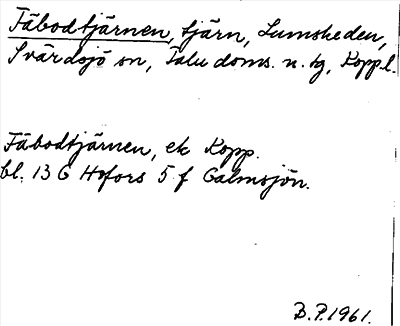 Fäbodtjärnen, tjärn, Lumsheden,
Svärdsjö sn, Falu doms. n. tg, Kopp.l.
Fäbodtjärnen, ek Kopp.
bl. 13 G Hofors 5 f Galmsjön.
B.P. 1961.